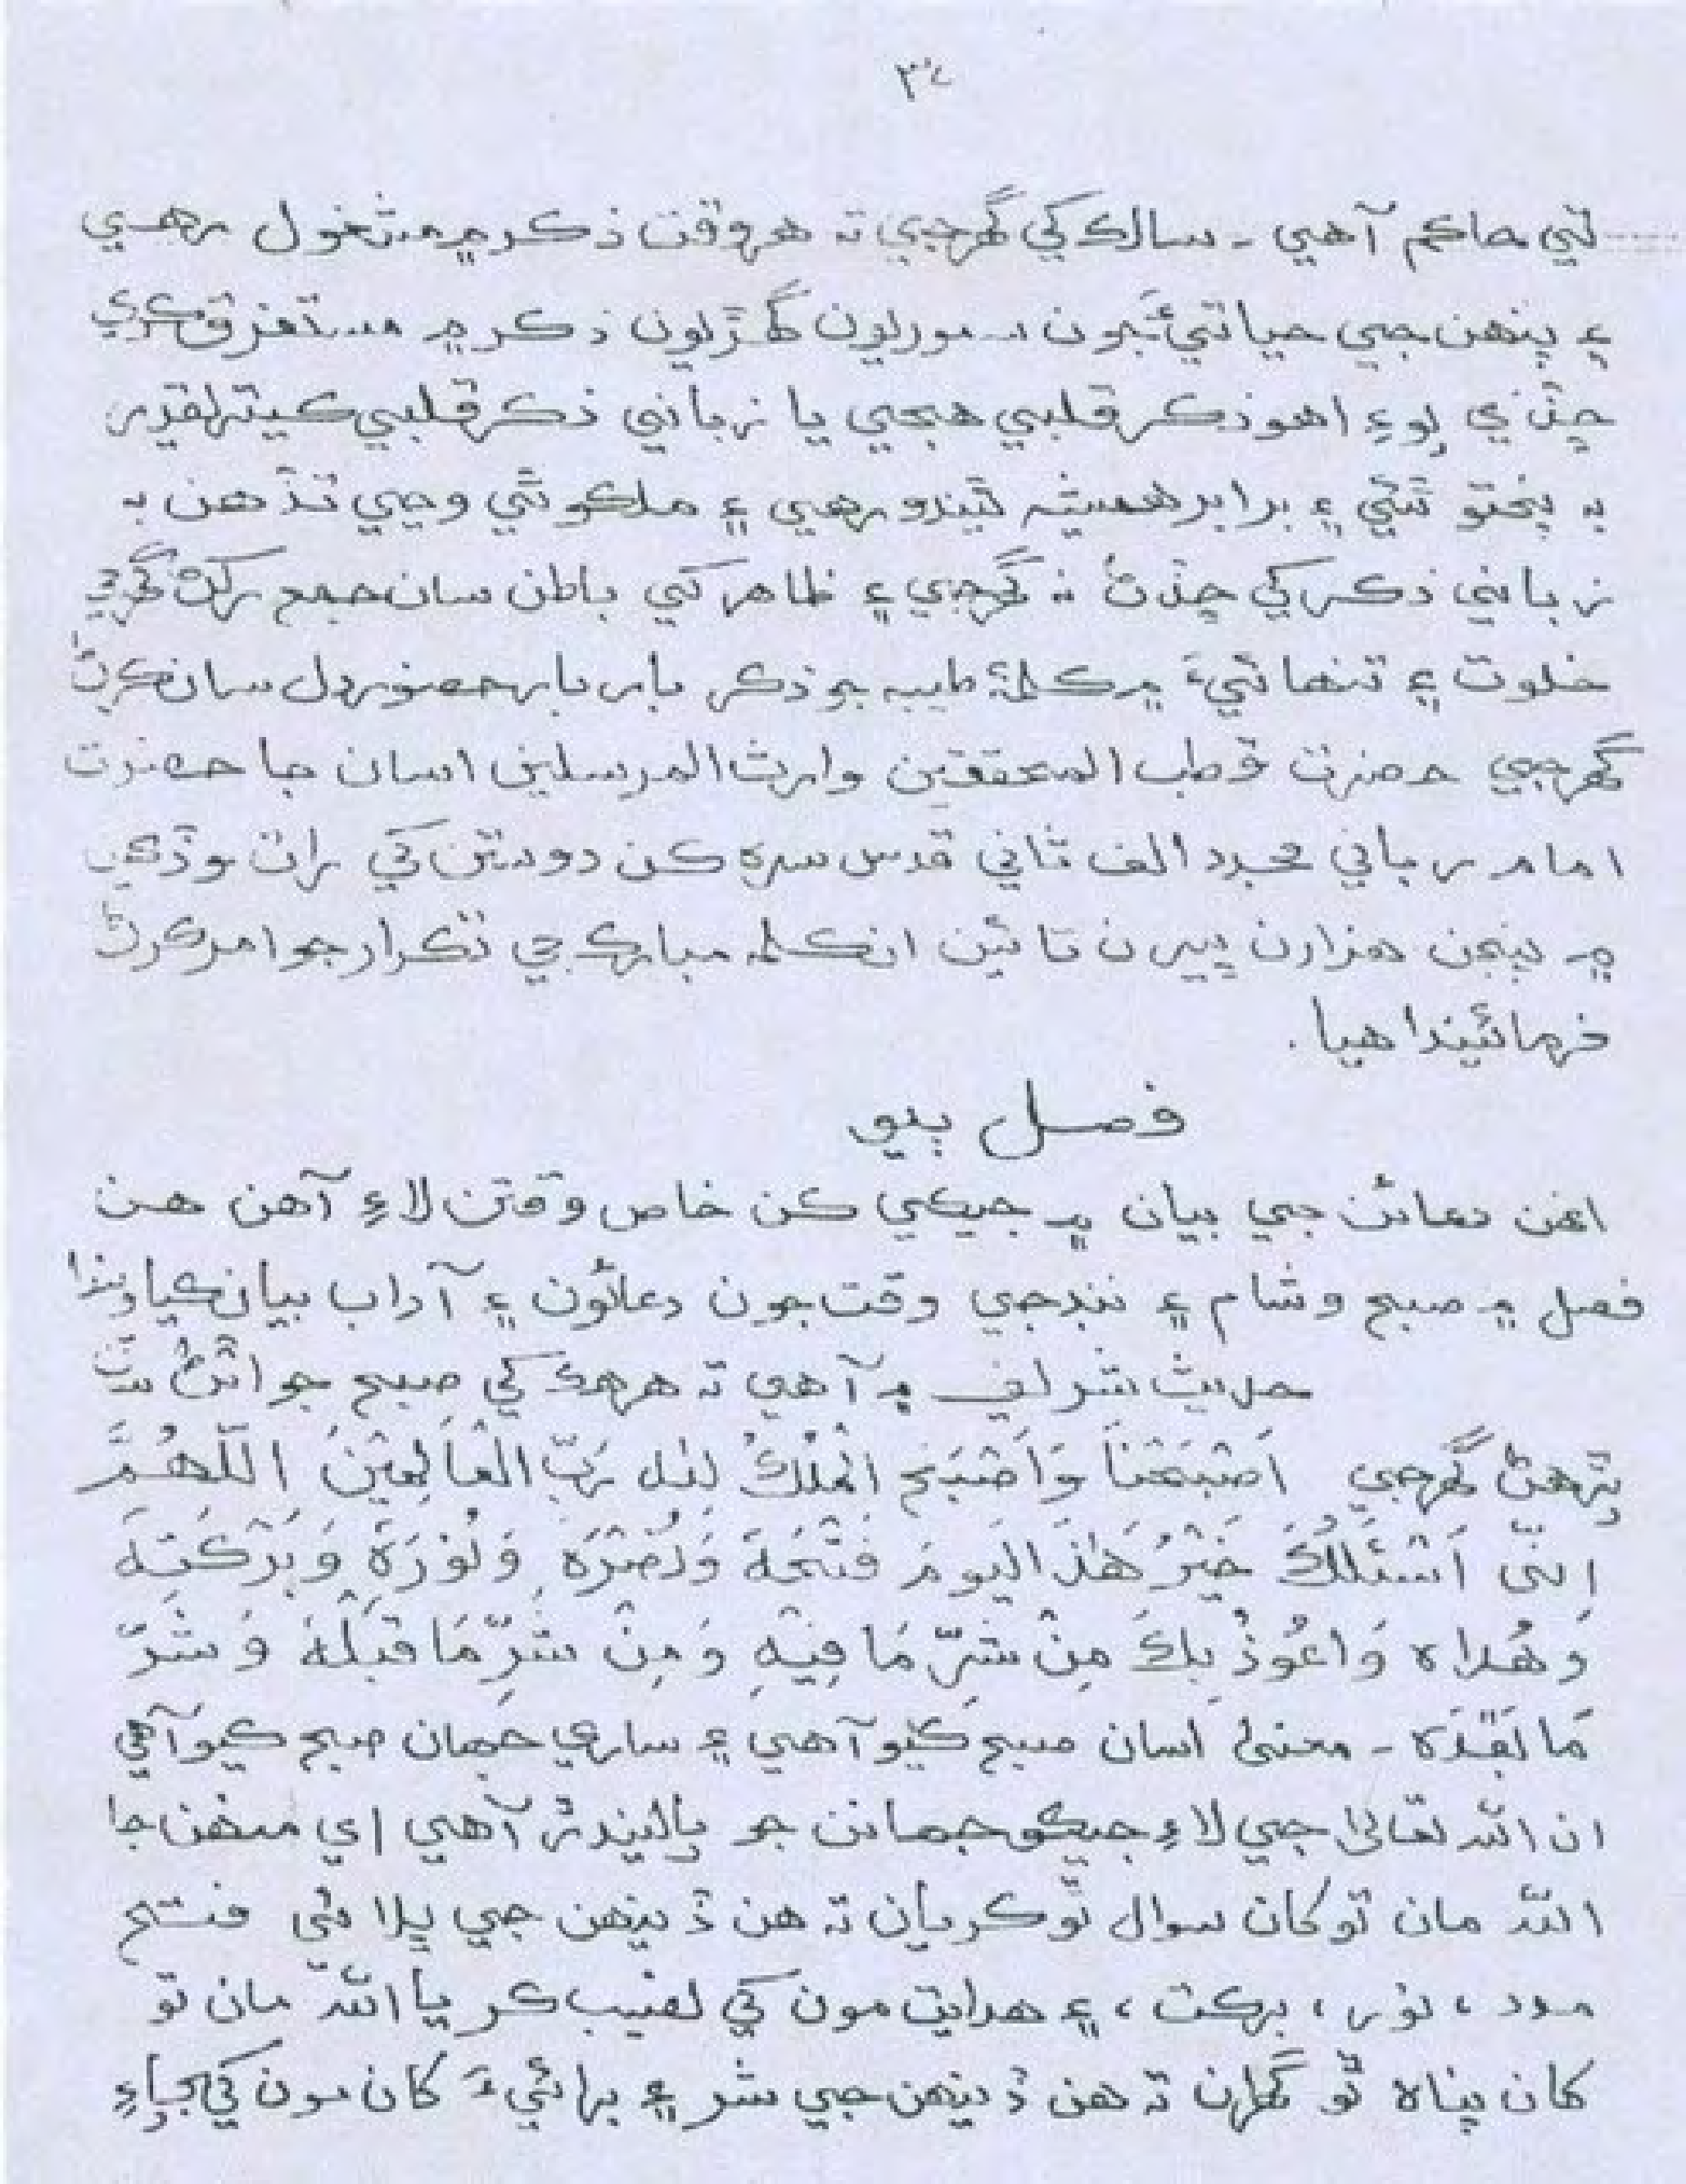 ٿي حاکم آهي ـ سالڪ کي گهرجي ته هر وقت ذڪر ۾ مشغول رهي
۽ پنهن جي حياتيءَ جون سموريون گهڙيون ذڪر ۾ مستغرق ڪري
ڇڏي پوءِ اهو ذڪر قلبي هجي يا زباني ذڪر قلبي ڪيترلقدر
به پختو ٿئي ۽ برابر هميشه ٿيندو رهي ۽ ملڪو ٿي وڃي تڏهن به
زباني ذڪر کي ڇڏڻ نه گهرجي ۽ ظاهر کي باطن سان جمع رکڻ گهرجي
خلوت ۽ تنهائيءَ ۾ ڪلمۂ طيبه جو ذڪر بار بار حضور دل سان ڪرڻ
گهرجي حضرت قطب المحققين وارث المرسلين اسان جا حضرت
امام رباني مجدد الف ثاني قدس سره ڪن دوستن کي رات وڏينهن
۾ پنجن هزارن ڀيرن تائين ان ڪلمه مبارڪ جي تڪرار جو امر ڪرڻ
فرمائيندا هيا.
فصل ٻيو
انهن دعائن جي بيان ۾ جيڪي ڪن خاص وقتن لاءِ آهن هن
فصل ۾ صبح وشام ۽ ننڊ جي وقت جون دعائون ۽ آداب بيان ڪيا ويندا
حديث شريف ۾ آهي ته هر هڪ کي صبح جو اٿڻ شرط
پڙهڻ گهرجي اَصْبَحْنَا وَاَصْبَحَ الْمُلْكُ لِلّٰهِ رَبِّ الْعَالَمِيْنَ اللّٰهُمَّ
اِنِّي اَسْئَلُكَ خَيْرَ هٰذَا الْيَوْمِ فَتْحَهٗ وَنَصْرَهٗ وَنُوْرَهٗ وَبَرْكَتِهٖ
وَهُدَاه وَاَعُوْذُ بِكَ مِنْ شَرِّ مَا فِيْهِ وَمِنْ شَرِّ مَا قَبْلَهٗ وَشَرِّ
مَا بَعْدَه ـ معنيٰ اسان صبح ڪيو آهي ۽ ساري جهان صبح ڪيو آهي
ان الله تعاليٰ جي لاءِ جيڪو جهانن جو پاليندڙ آهي اي منهن جا
الله مان توکان سوال ٿو ڪريان ته هن ڏينهن جي ڀلائي فتح
مدد ، نور ، برڪت ، ۽ هدايت مون کي نصيب ڪر يا الله مان تو
کان پناه ٿو گهران ته هن ڏينهن جي شر ۽ برائيءَ کان مون کي بچاءِ